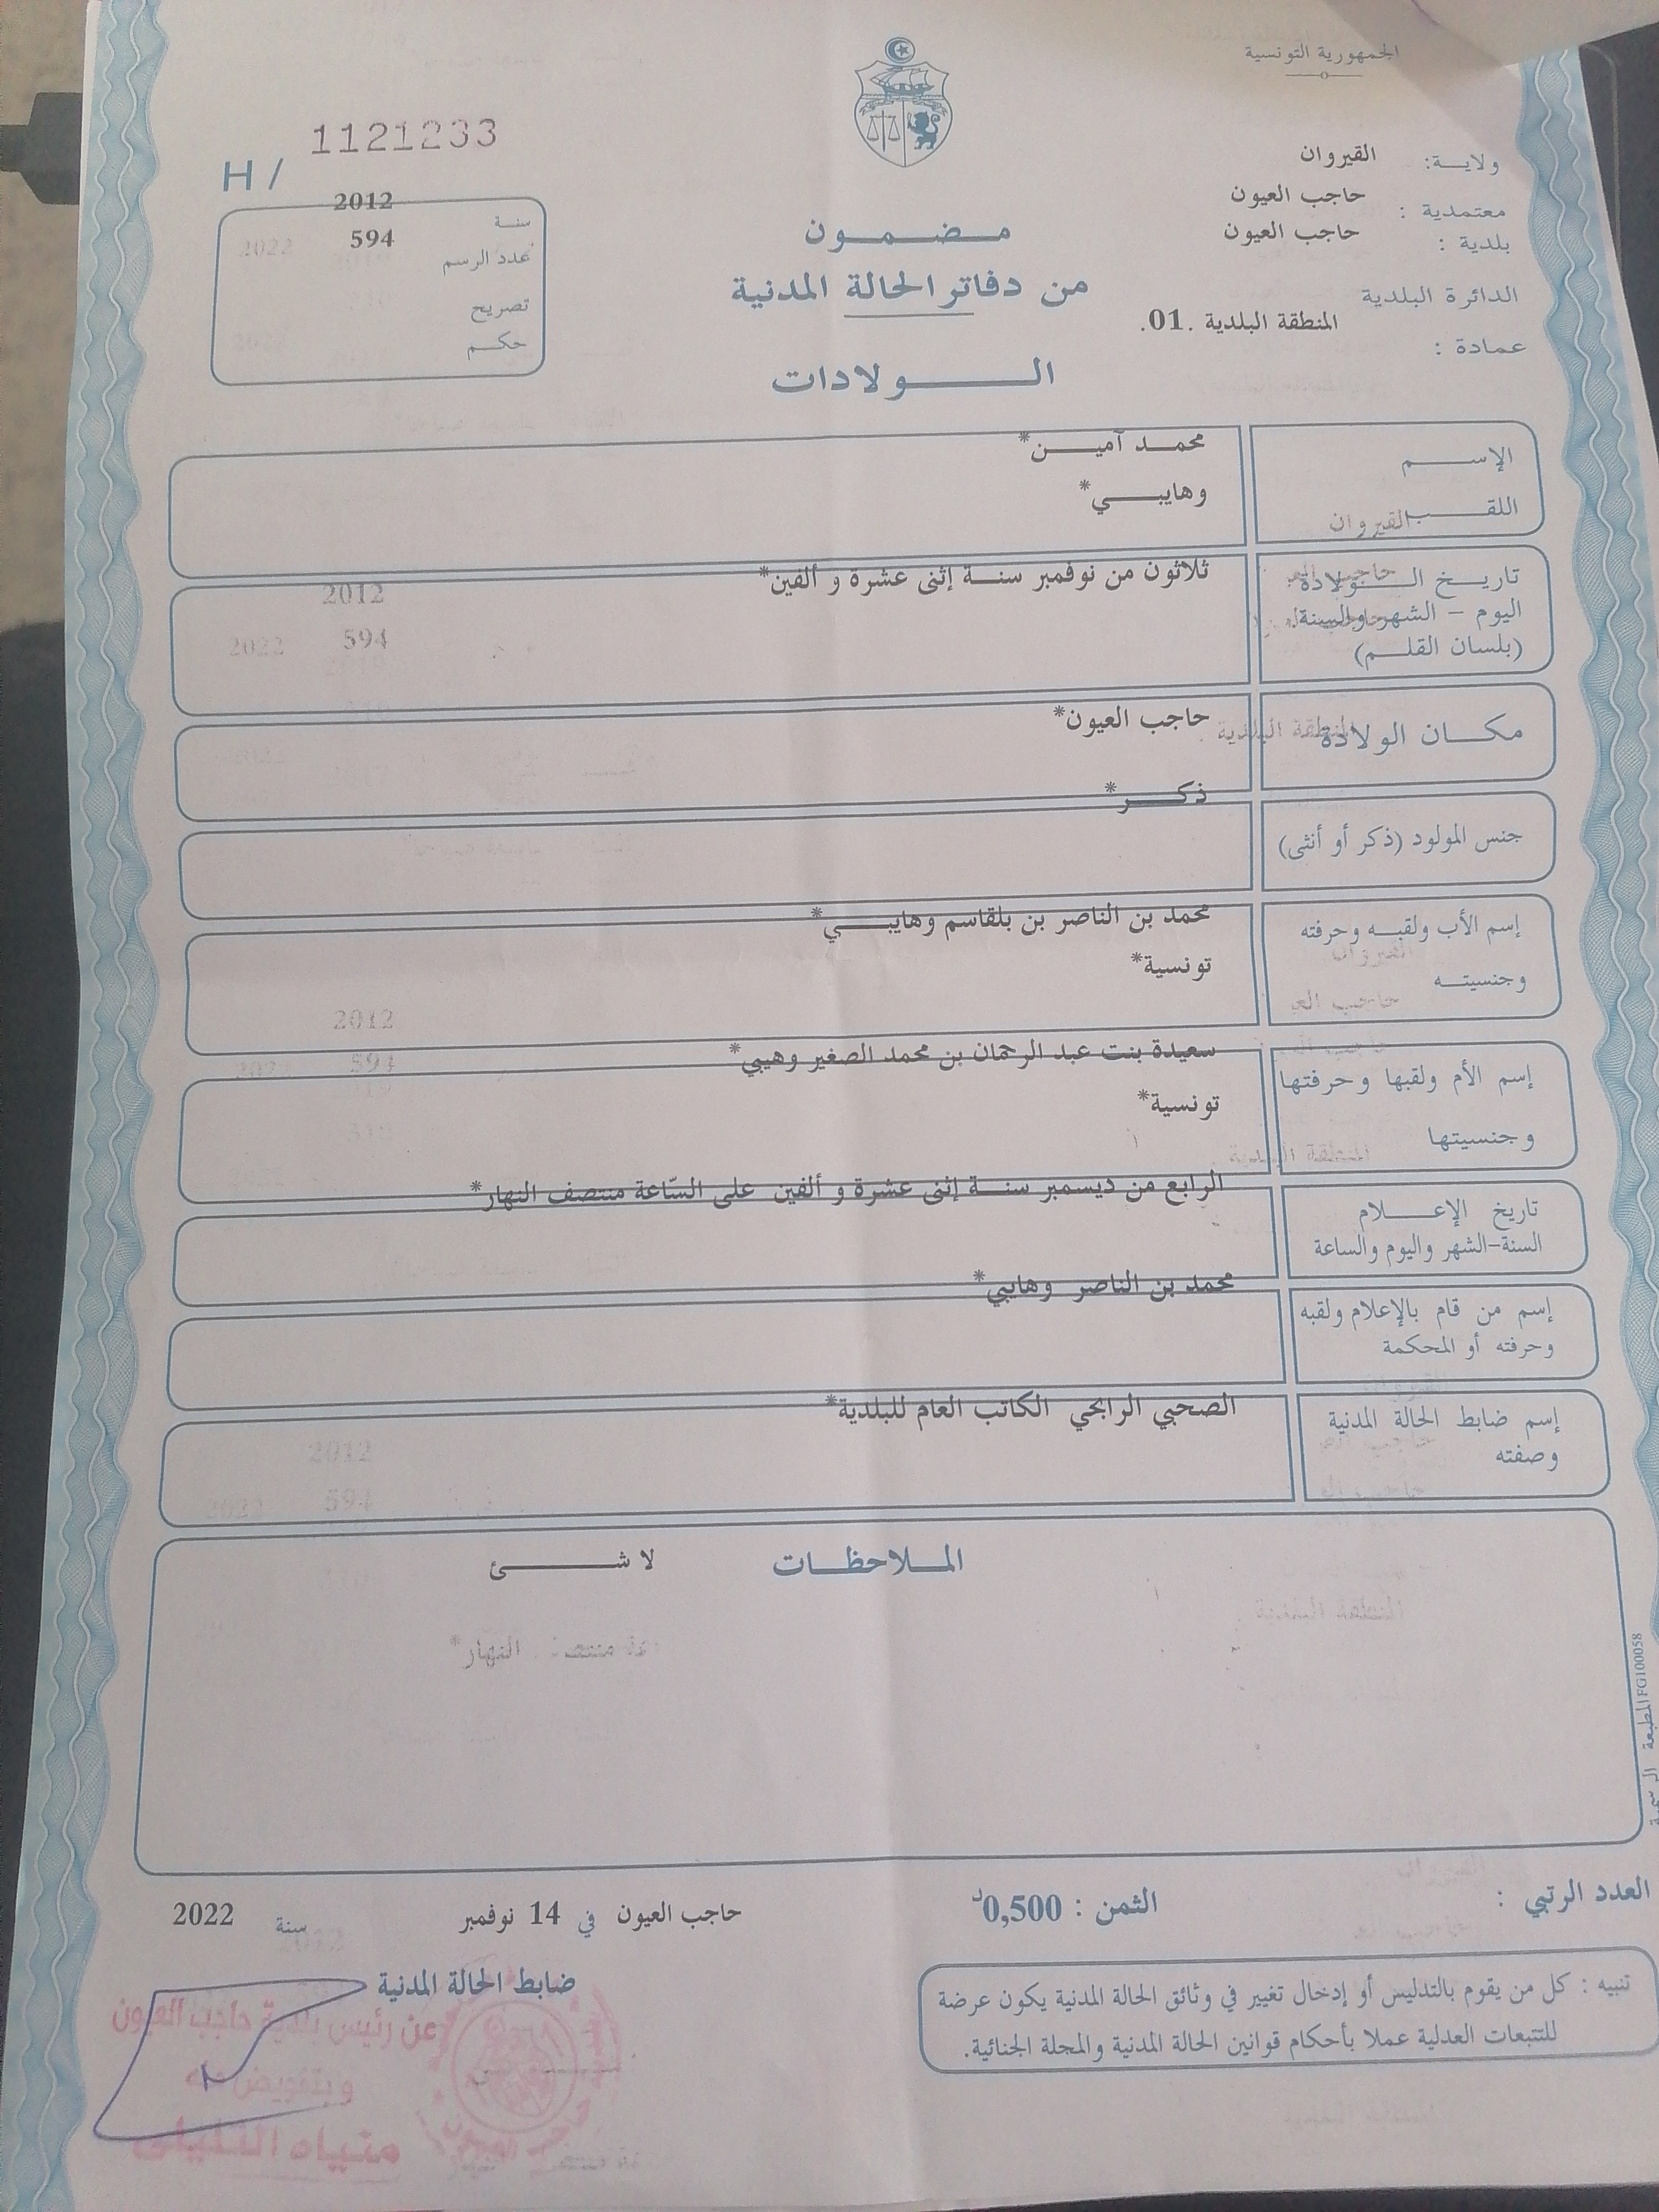 الجمهورية التونسية
ولاية: القيروان
معتمدية : حاجب العيون
بلدية : حاجب العيون
الدائرة البلدية
المنطقة البلدية .01.
عمادة :
H/ 1121233
سنة 2012
عدد الرسم 594
تصريح
حكم
مضمون
من دفاتر الحالة المدنية
الولادات
الإسم محمد آمين*
اللقب وهايبي*
تاريخ الولادة ثلاثون من نوفمبر سنة إثنى عشرة و ألفين*
اليوم - الشهر والسنة
(بلسان القلم)
مكان الولادة حاجب العيون*
ذكر*
جنس المولود (ذكر أو أنثى)
إسم الأب ولقبه وحرفته محمد بن الناصر بن بلقاسم وهايبي*
وجنسيته تونسية*
إسم الأم ولقبها وحرفتها سعيدة بنت عبد الرحمان بن محمد الصغير وهيبي*
وجنسيتها تونسية*
الرابع من ديسمبر سنة إثنى عشرة و ألفين على السّاعة منتصف النهار*
تاريخ الإعلام
السنة-الشهر واليوم والساعة
محمد بن الناصر وهايبي*
إسم من قام بالإعلام ولقبه
وحرفته أو المحكمة
إسم ضابط الحالة المدنية الصحبي الرابحي الكاتب العام للبلدية*
وصفته
الملاحظات لا شئ
المطبعة الرسمية FG100058
العدد الرتبي :
الثمن : 0,500د
حاجب العيون في 14 نوفمبر سنة 2022
ضابط الحالة المدنية
عن رئيس بلدية حاجب العيون
وبتفويض منه
تنبيه : كل من يقوم بالتدليس أو إدخال تغيير في وثائق الحالة المدنية يكون عرضة
للتتبعات العدلية عملا بأحكام قوانين الحالة المدنية والمجلة الجنائية.